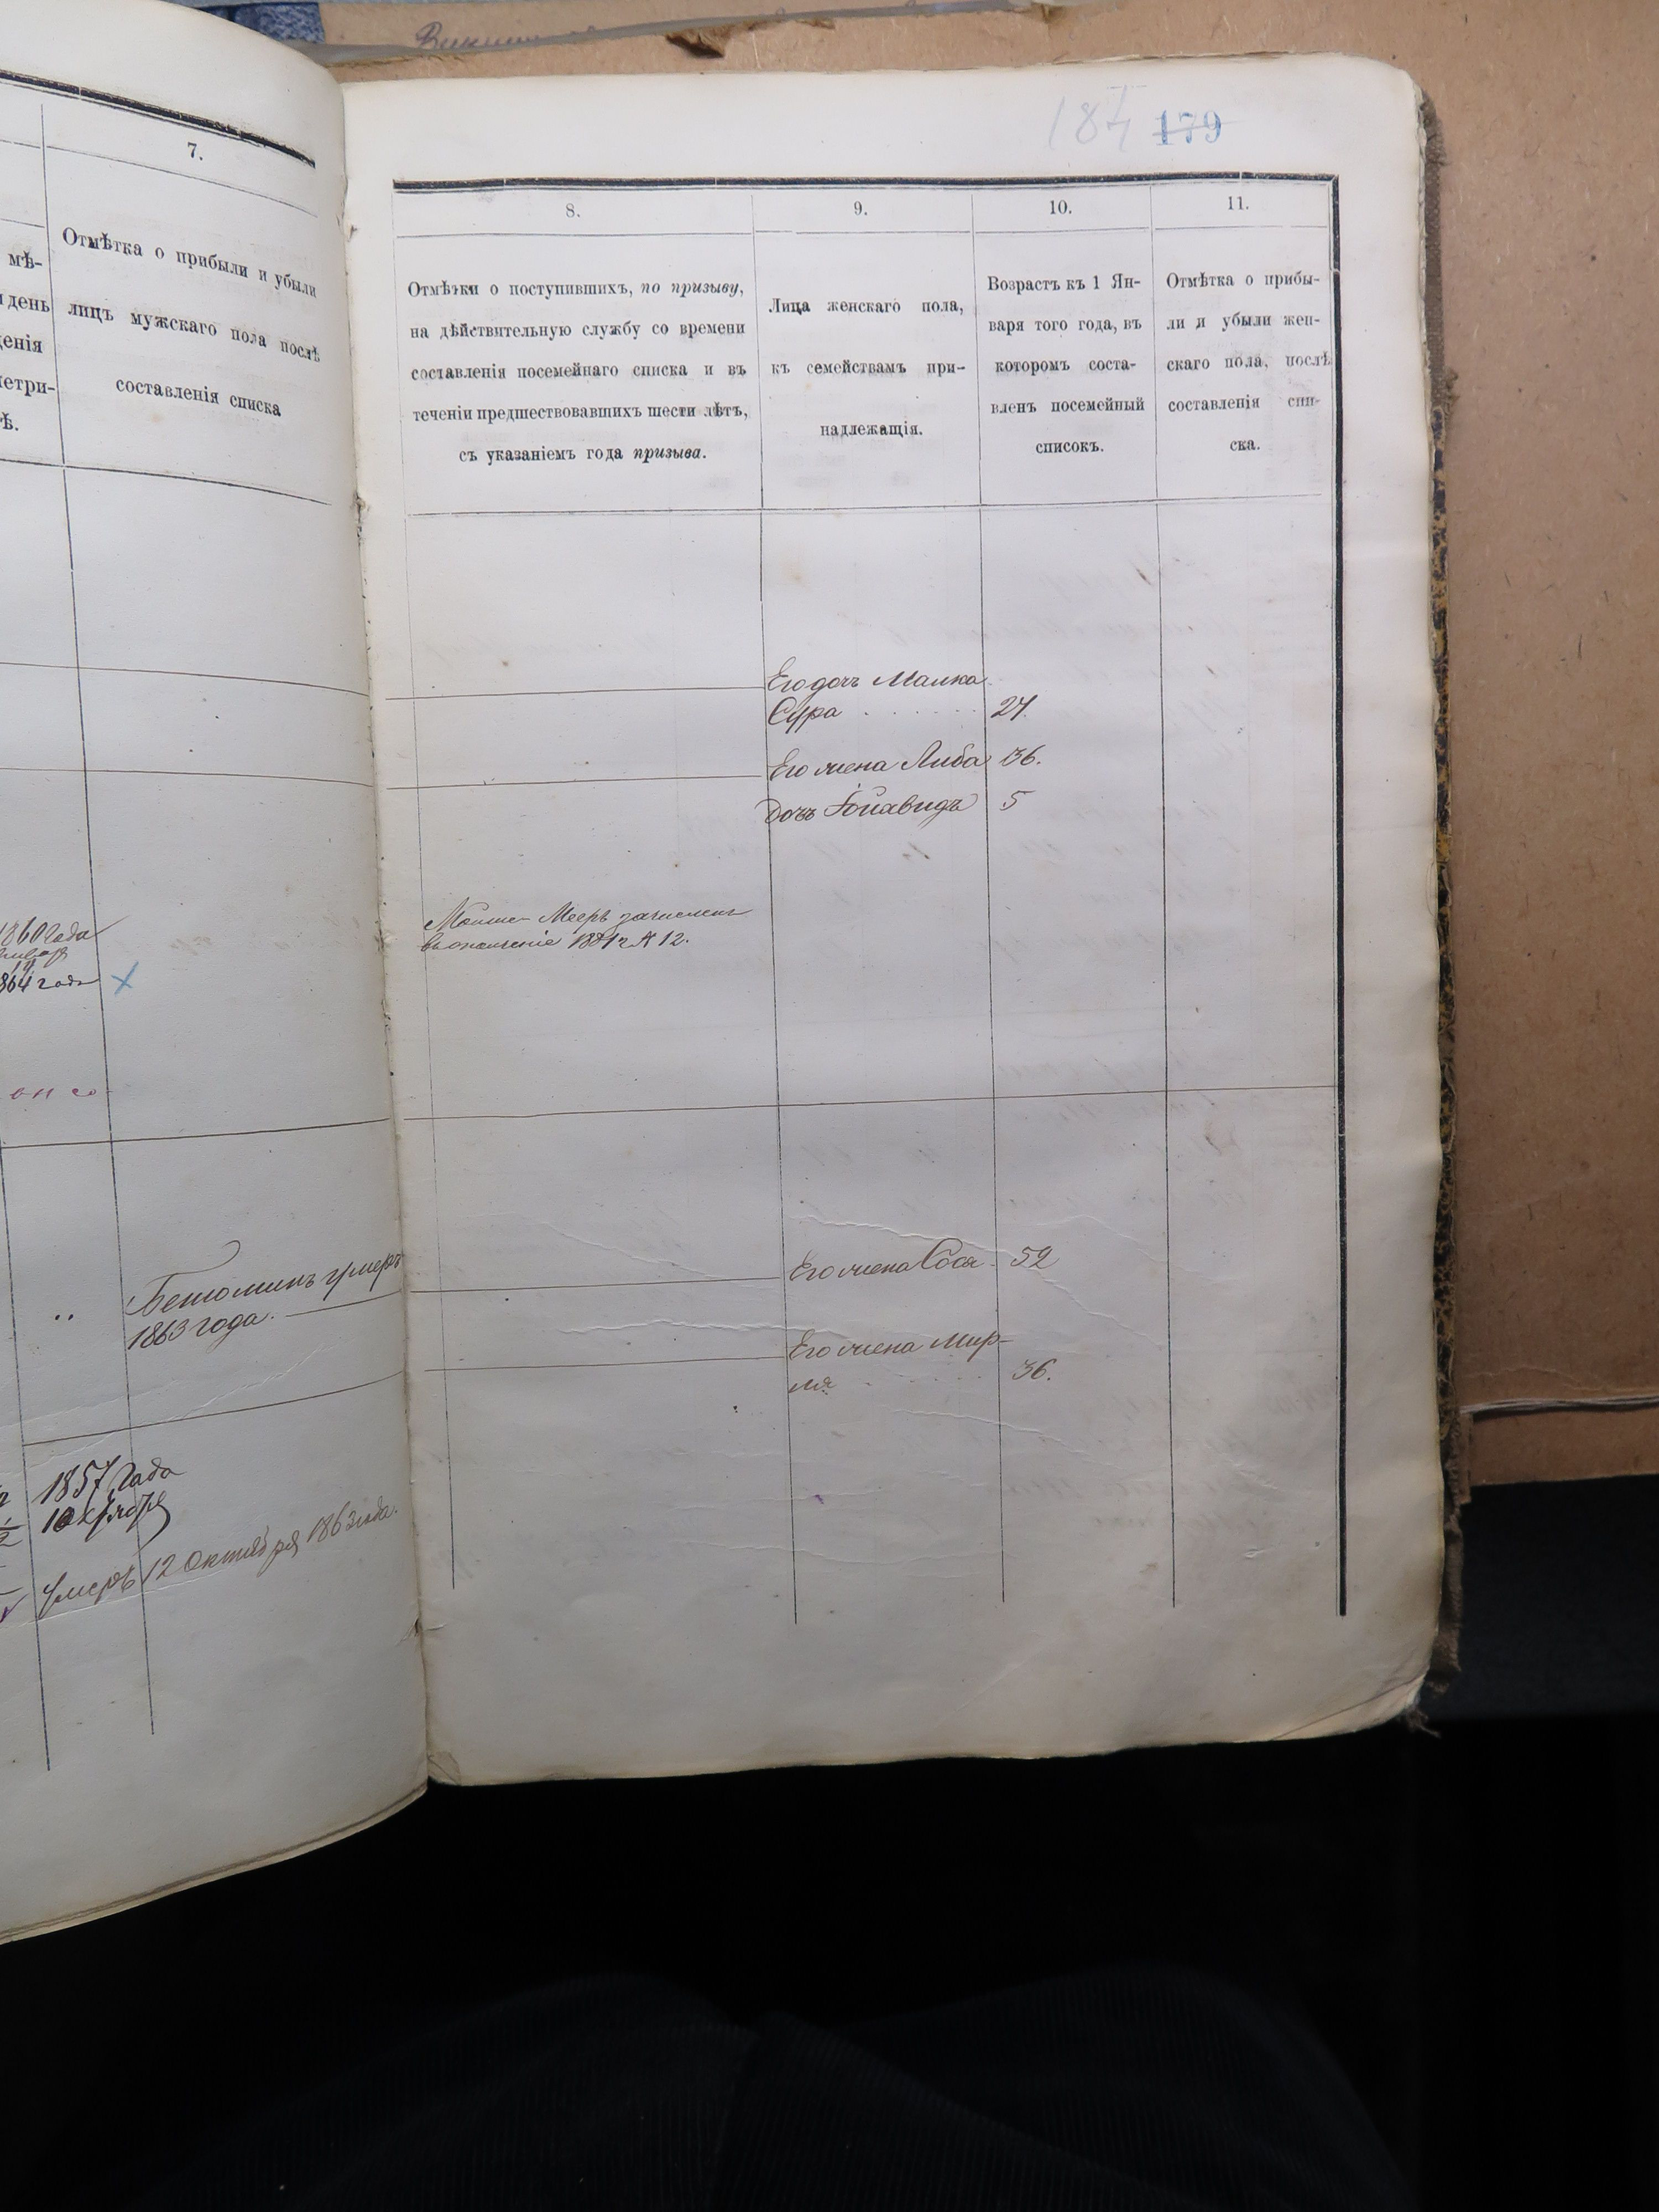 184 179
7.
Отмѣтка о прибыли и убыли
лицъ мужскаго пола послѣ
составленія списка
мѣ-
день
денія
метри-
ѣ.
1860 года
1864 года
Бенюминъ умеръ
1863 года.
1857 года
умеръ 12 Октября 1863 года.
8.
Отмѣтки о поступившихъ, по призыву,
на дѣйствительную службу со времени
составленія посемейнаго списка и въ
теченіи предшествовавшихъ шести лѣтъ,
съ указаніемъ года призыва.
Мовша-Мееръ зачисленъ
въ ополченіе 1881 г. № 12.
9.
Лица женскаго пола,
къ семействамъ при-
надлежащія.
10.
Возрастъ къ 1 Ян-
варя того года, въ
которомъ соста-
вленъ посемейный
списокъ.
11.
Отмѣтка о прибы-
ли и убыли жен-
скаго пола, послѣ
составленія спи-
ска.
Его дочь Малка
Сура 24.
Его жена Либа 36.
Дочь 5
Его жена Сося 52
Его жена Мир-
ля 36.